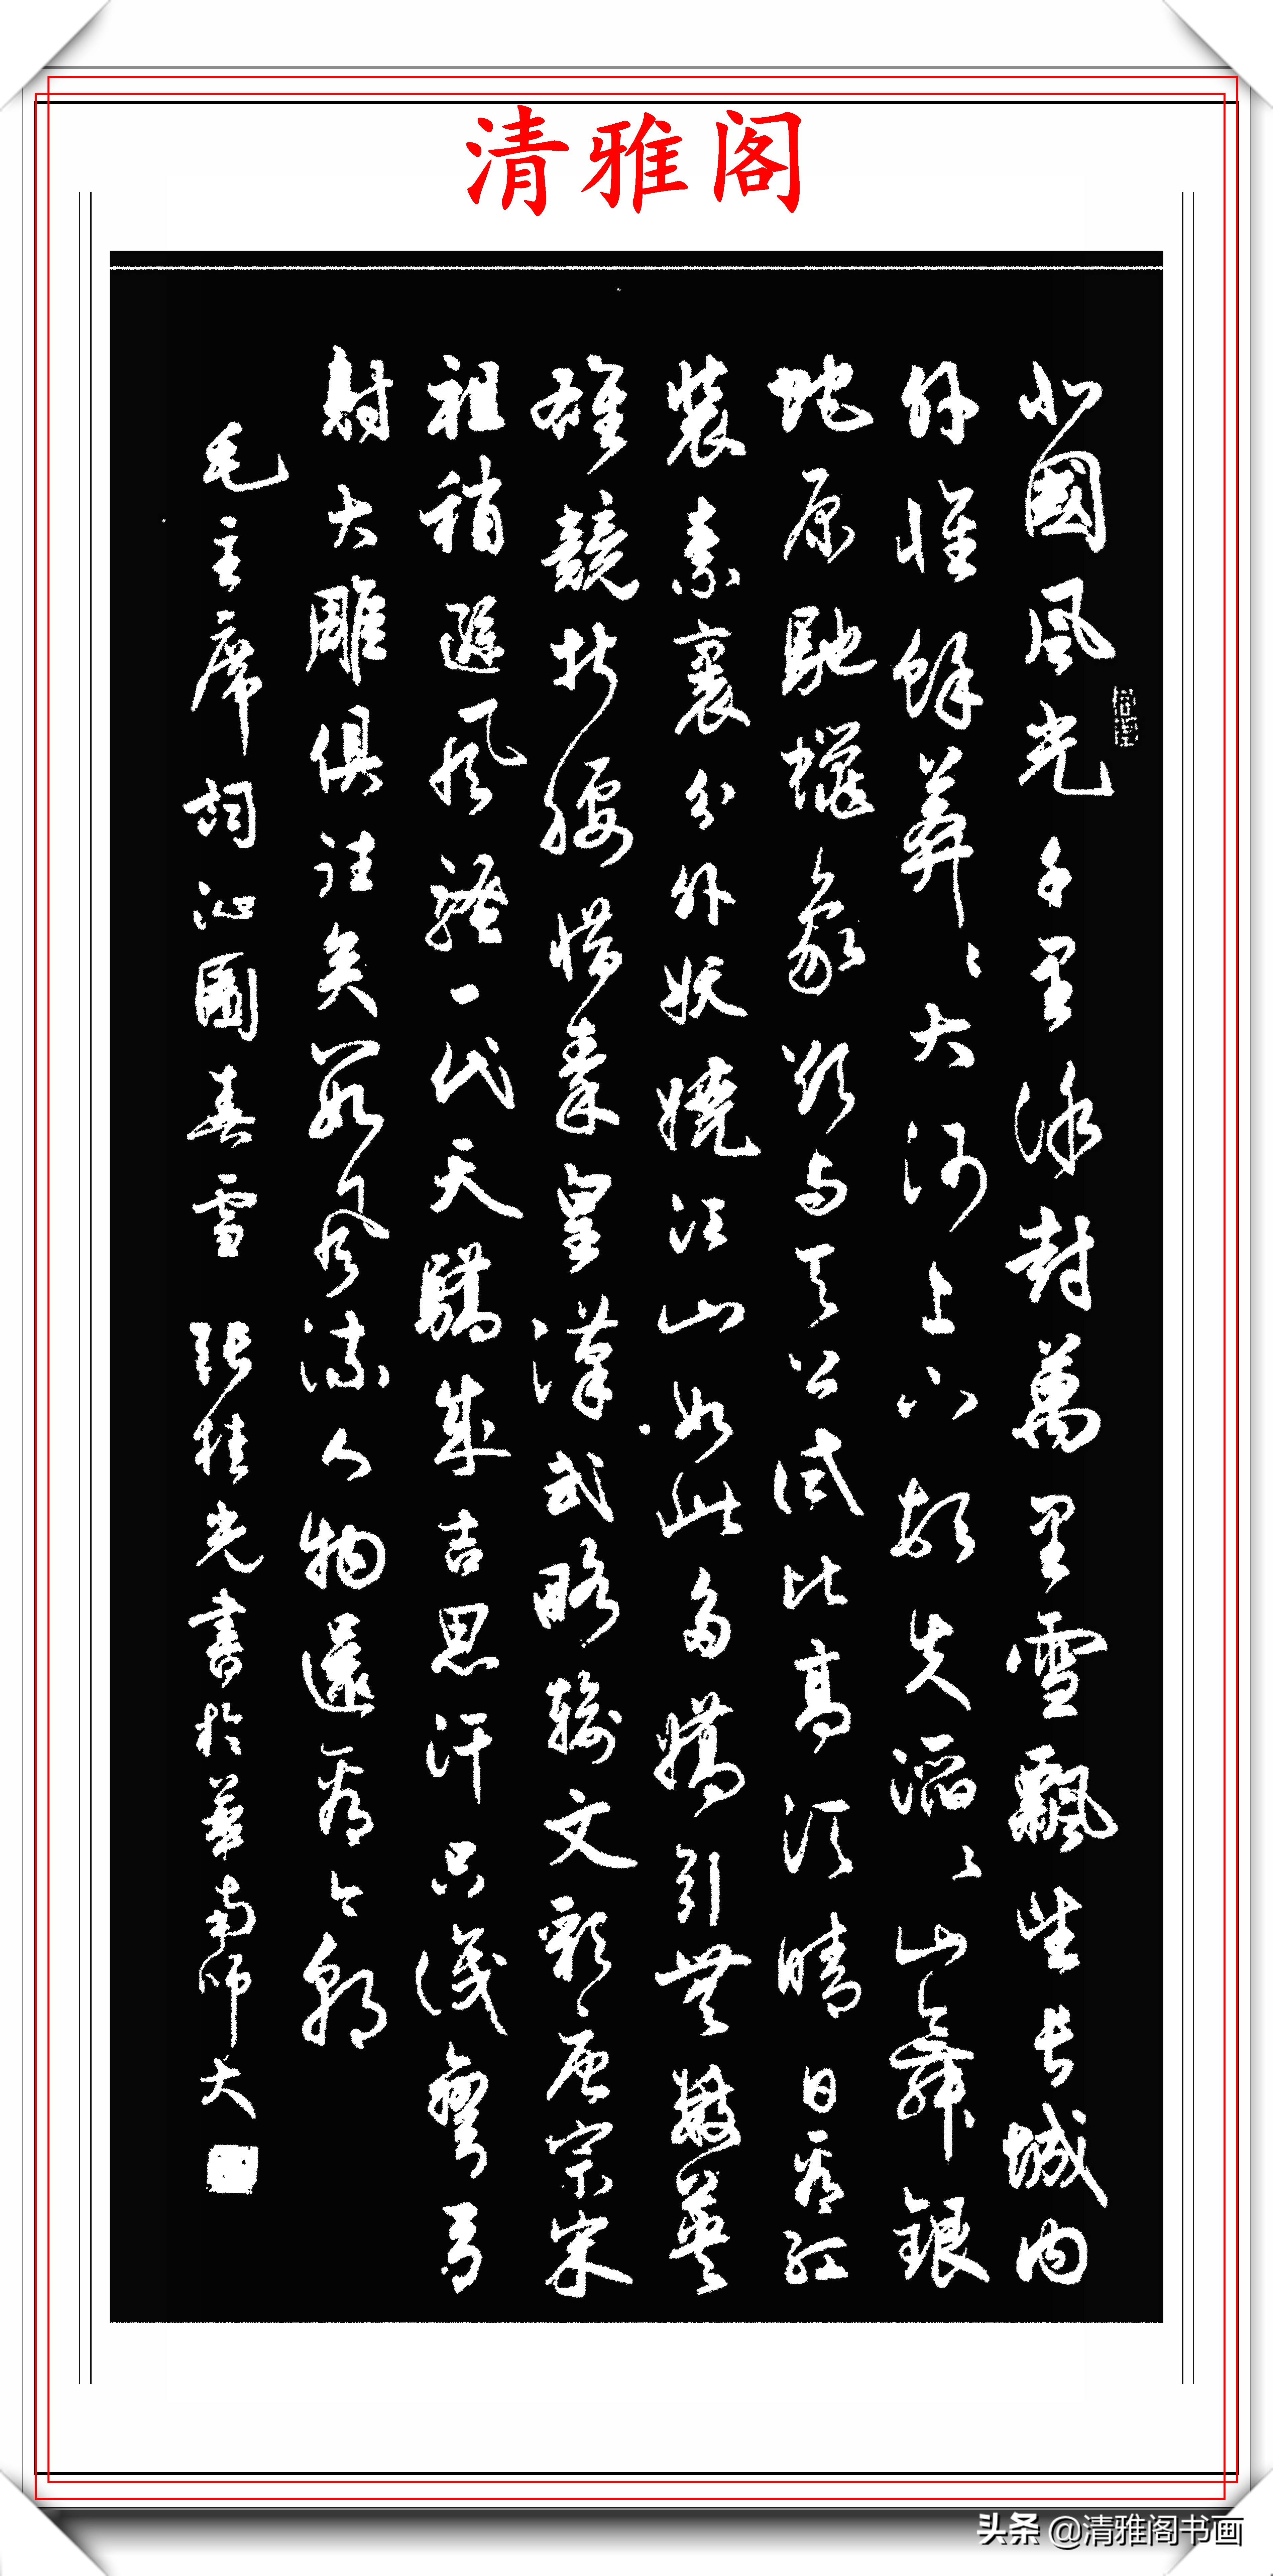 清雅阁
北國風光千里冰封萬里雪飄望長城内
外惟餘莽〻大河上下頓失滔〻山舞銀
蛇原馳蠟象欲与天公試比高須晴日看紅
裝素裹分外妖嬈江山如此多嬌引無數英
雄競折腰惜秦皇漢武略輸文彩唐宗宋
祖稍遜風騷一代天驕成吉思汗只識彎弓
射大雕俱往矣數風流人物還看今朝
毛主席詞沁園春雪 張桂光書於華南師大
头条 @清雅阁书画